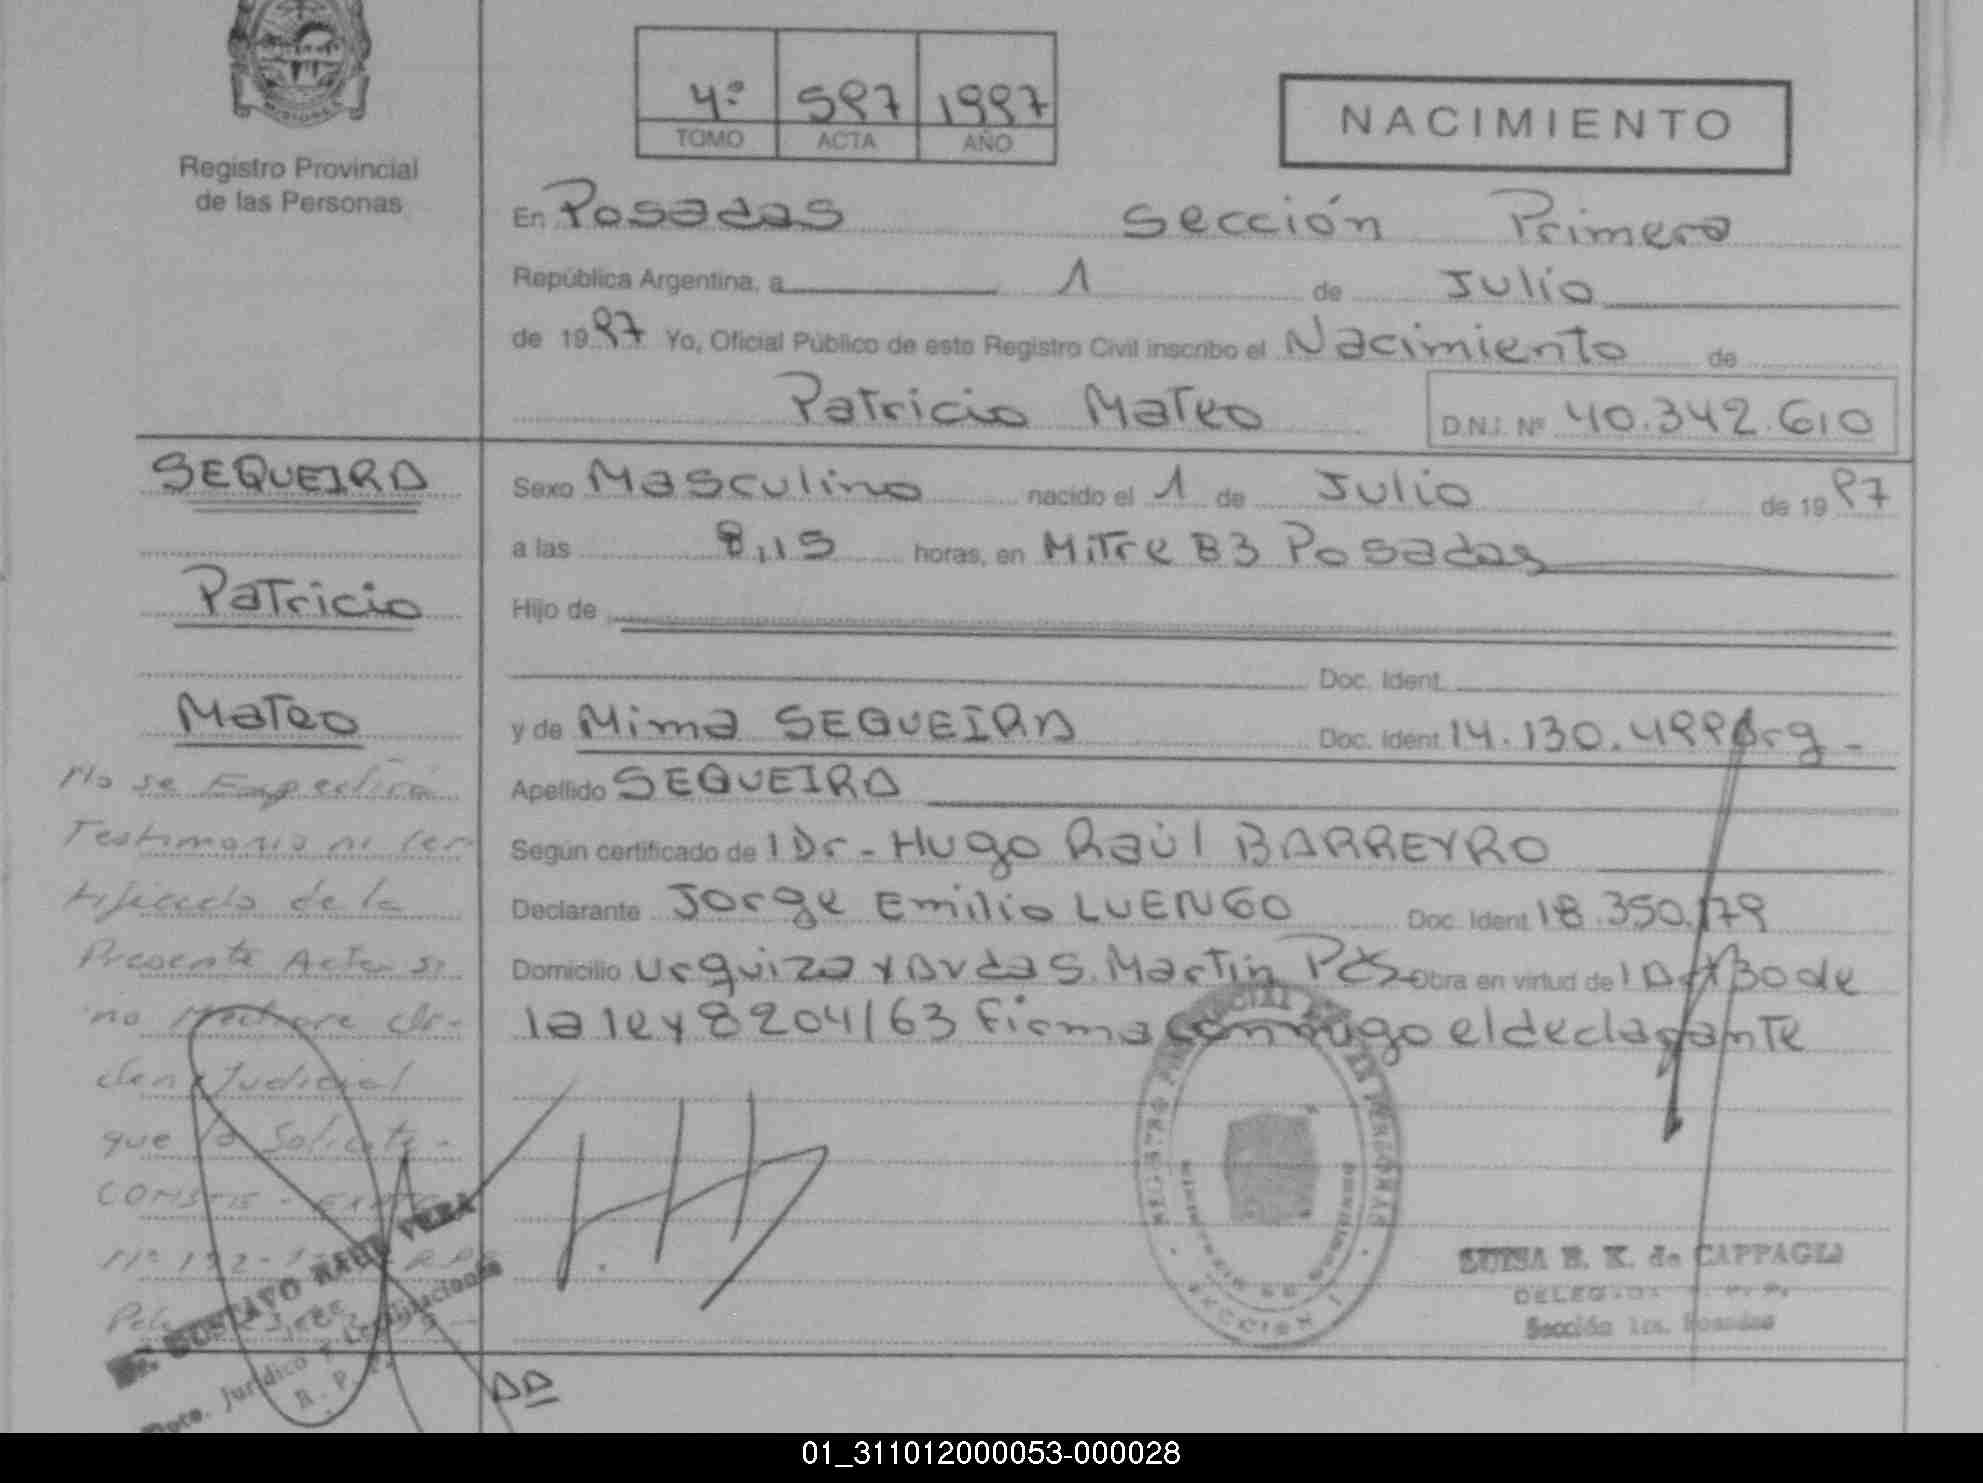 Registro Provincial
de las Personas
4º 597 1997
TOMO ACTA AÑO
NACIMIENTO
En Posadas Sección Primera
República Argentina, a 1 de Julio
de 1997 Yo, Oficial Público de este Registro Civil inscribo el Nacimiento de
Patricio Mateo D.N.I. Nº 40.342.610
SEQUEIRA
Patricio
Mateo
Sexo Masculino nacido el 1 de Julio de 1997
a las 8,15 horas, en Mitre 83 Posadas
Hijo de
Doc. Ident.
y de Mirna SEQUEIRA Doc. Ident. 14.130.499 Arg -
Apellido SEQUEIRA
Según certificado de l Dr - Hugo Raúl BARREYRO
Declarante Jorge Emilio LUENGO Doc. Ident. 18.350.179
Domicilio Urquiza y Avda S. Martin Pds Obra en virtud de l Art 30 de
la ley 8204/63 firma conmigo el declarante
No se Expedirá
Testimonio ni Cer
tificado de la
Presente Acta si
no Mediare Or-
den Judicial
que lo Solicite -
Nº 192-
Dr. GUSTAVO RAUL VERA
Dpto. Jurídico y
R. P. P.
REGISTRO PROVINCIAL DE LAS PERSONAS
MINISTERIO DE GOBIERNO
SECCION 1
LUISA E. K. de CAPPAGLI
Sección 1ra. Posadas
01_311012000053-000028